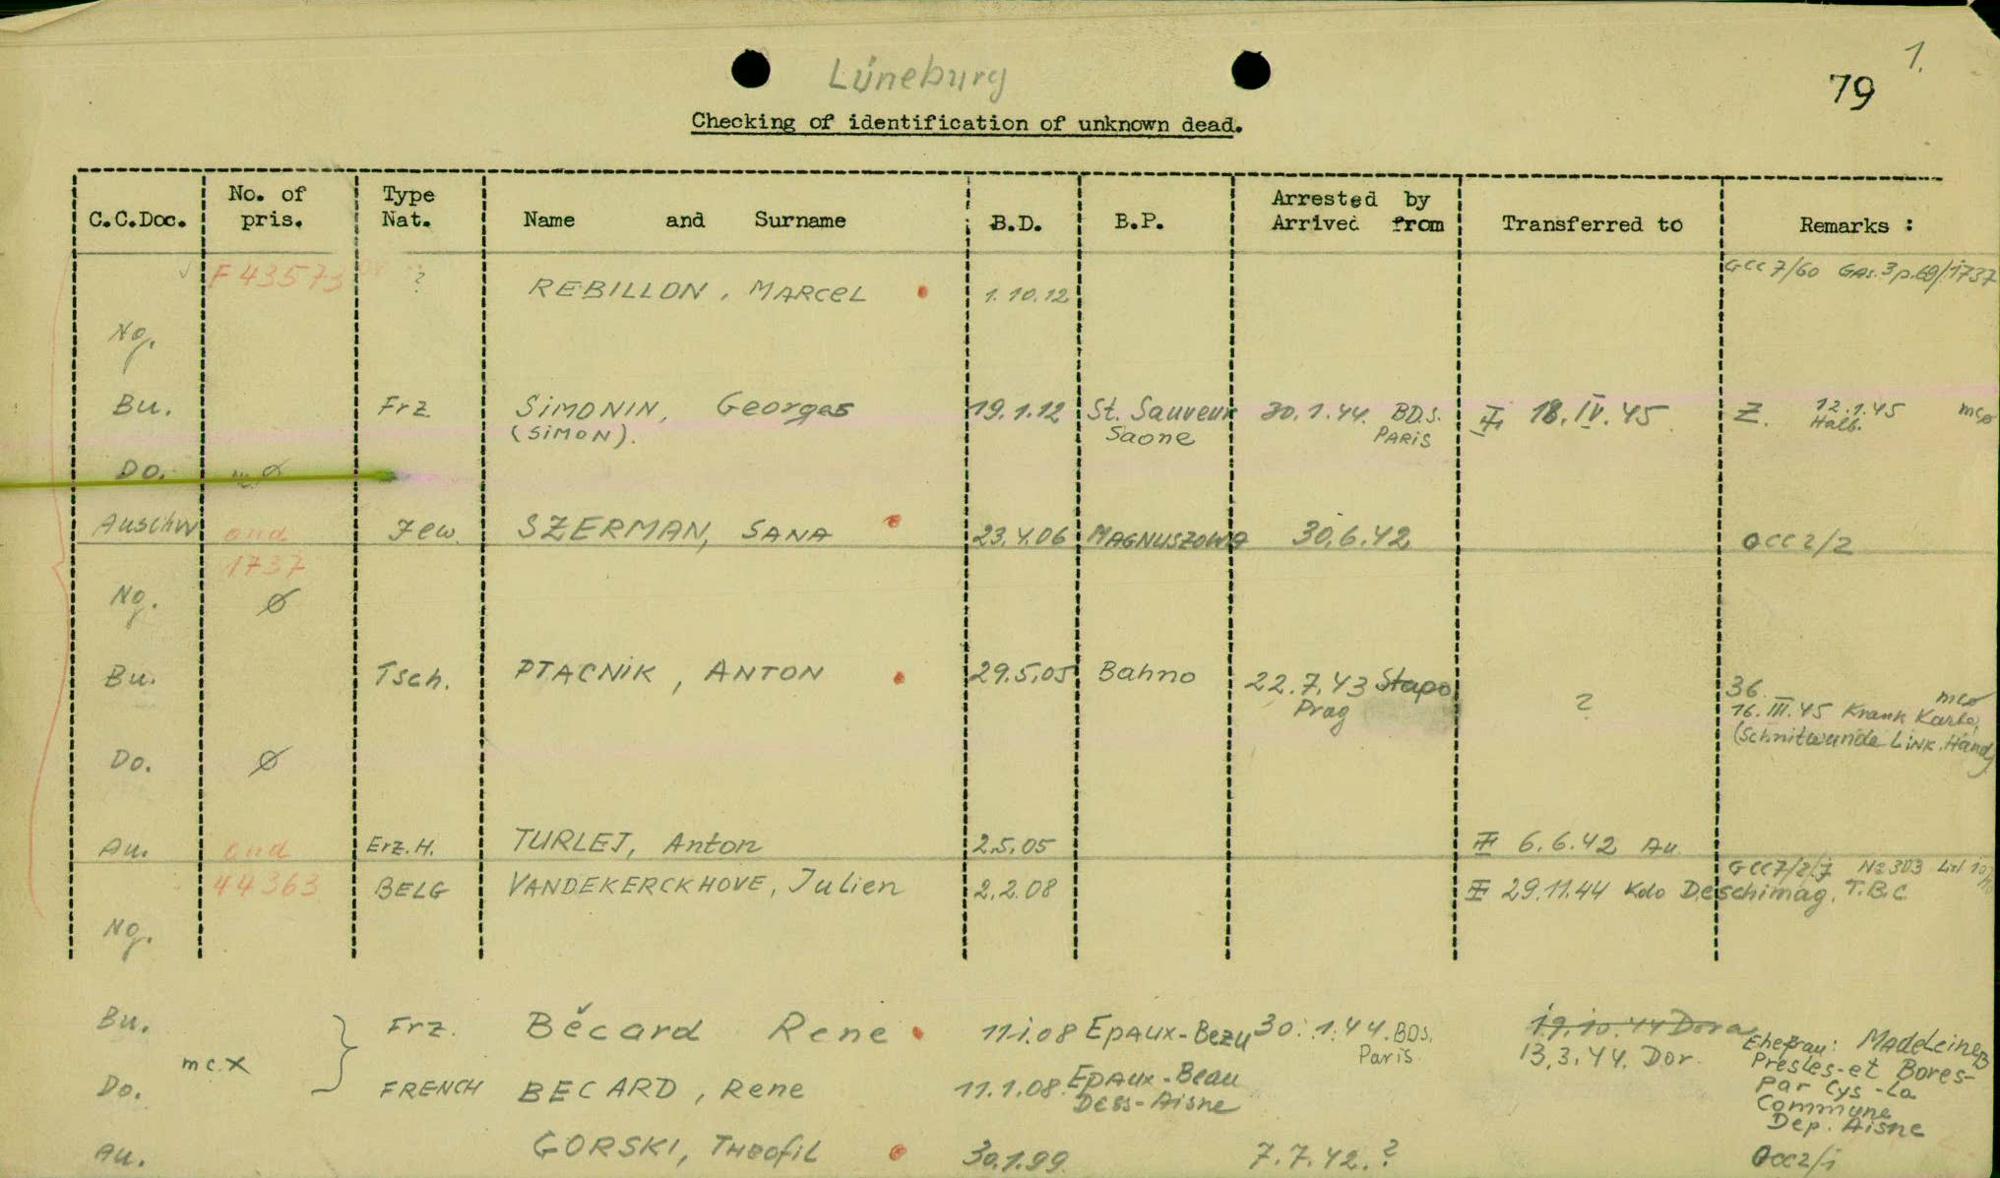 1.
79
Lüneburg
Checking of identification of unknown dead.
C.C.Doc. No. of pris. Type Nat. Name and Surname B.D. B.P. Arrested by Arrived from Transferred to Remarks :
F 43573 ? REBILLON, MARCEL 1.10.12 GCC 7/60 Gas. 3 p. 69/1737
Ng.
Bu. Frz SIMONIN, Georges 19.1.12 St. Sauveur 30.1.44. BDS. 18.IV.45 Z. 12.1.45 mco
(SIMON). Saone PARIS Halb.
Do. ø
Auschw and Jew. SZERMAN, SANA 23.4.06 MAGNUSZOWA 30.6.42 OCC 2/2
1737
Ng. ø
Bu. Tsch. PTACNIK, ANTON 29.5.05 Bahno 22.7.43 Stapo ? 36. mco
Prag 16.III.45 Krank Karte,
(Schnitwunde Link. Hand)
Do. ø
Au. and Erz.H. TURLEJ, Anton 2.5.05 6.6.42 Au.
GCC7/2/j No 303
44363 BELG VANDEKERCKHOVE, Julien 2.2.08 29.11.44 Kdo Deschimag. T.B.C
Ng.
Bu. Frz. Bécard Rene 11.1.08 Epaux-Bezu 30.1.44. BDS. 19.10.44 Dora
Paris 13.3.44. Dor. Ehefrau: Madeleine B
mc.x Presles-et Bores-
Do. FRENCH BECARD, Rene 11.1.08. Epaux-Beau par Cys-La
Dess-Aisne Commune
Dep. Aisne
Au. GORSKI, Theofil 30.1.99. 7.7.42. ? OCC2/i